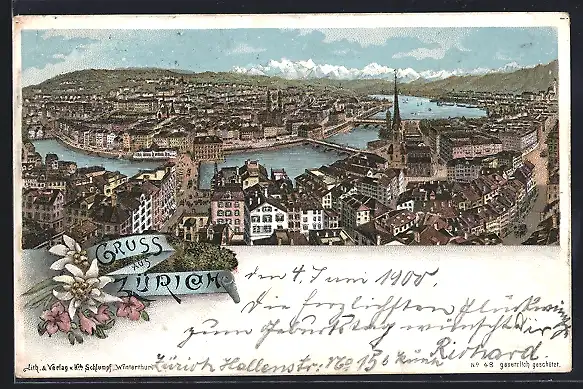 GRUSS
AUS
ZÜRICH
den 4. Juni 1900
Die herzlichsten Glückwünsche
zum Geburtstag wünscht dir
Richard.
Zürich Hallenstr: No 15
Lith. & Verlag v. Wilh. Schlumpf, Winterthur
No 48 gesetzlich geschützt.